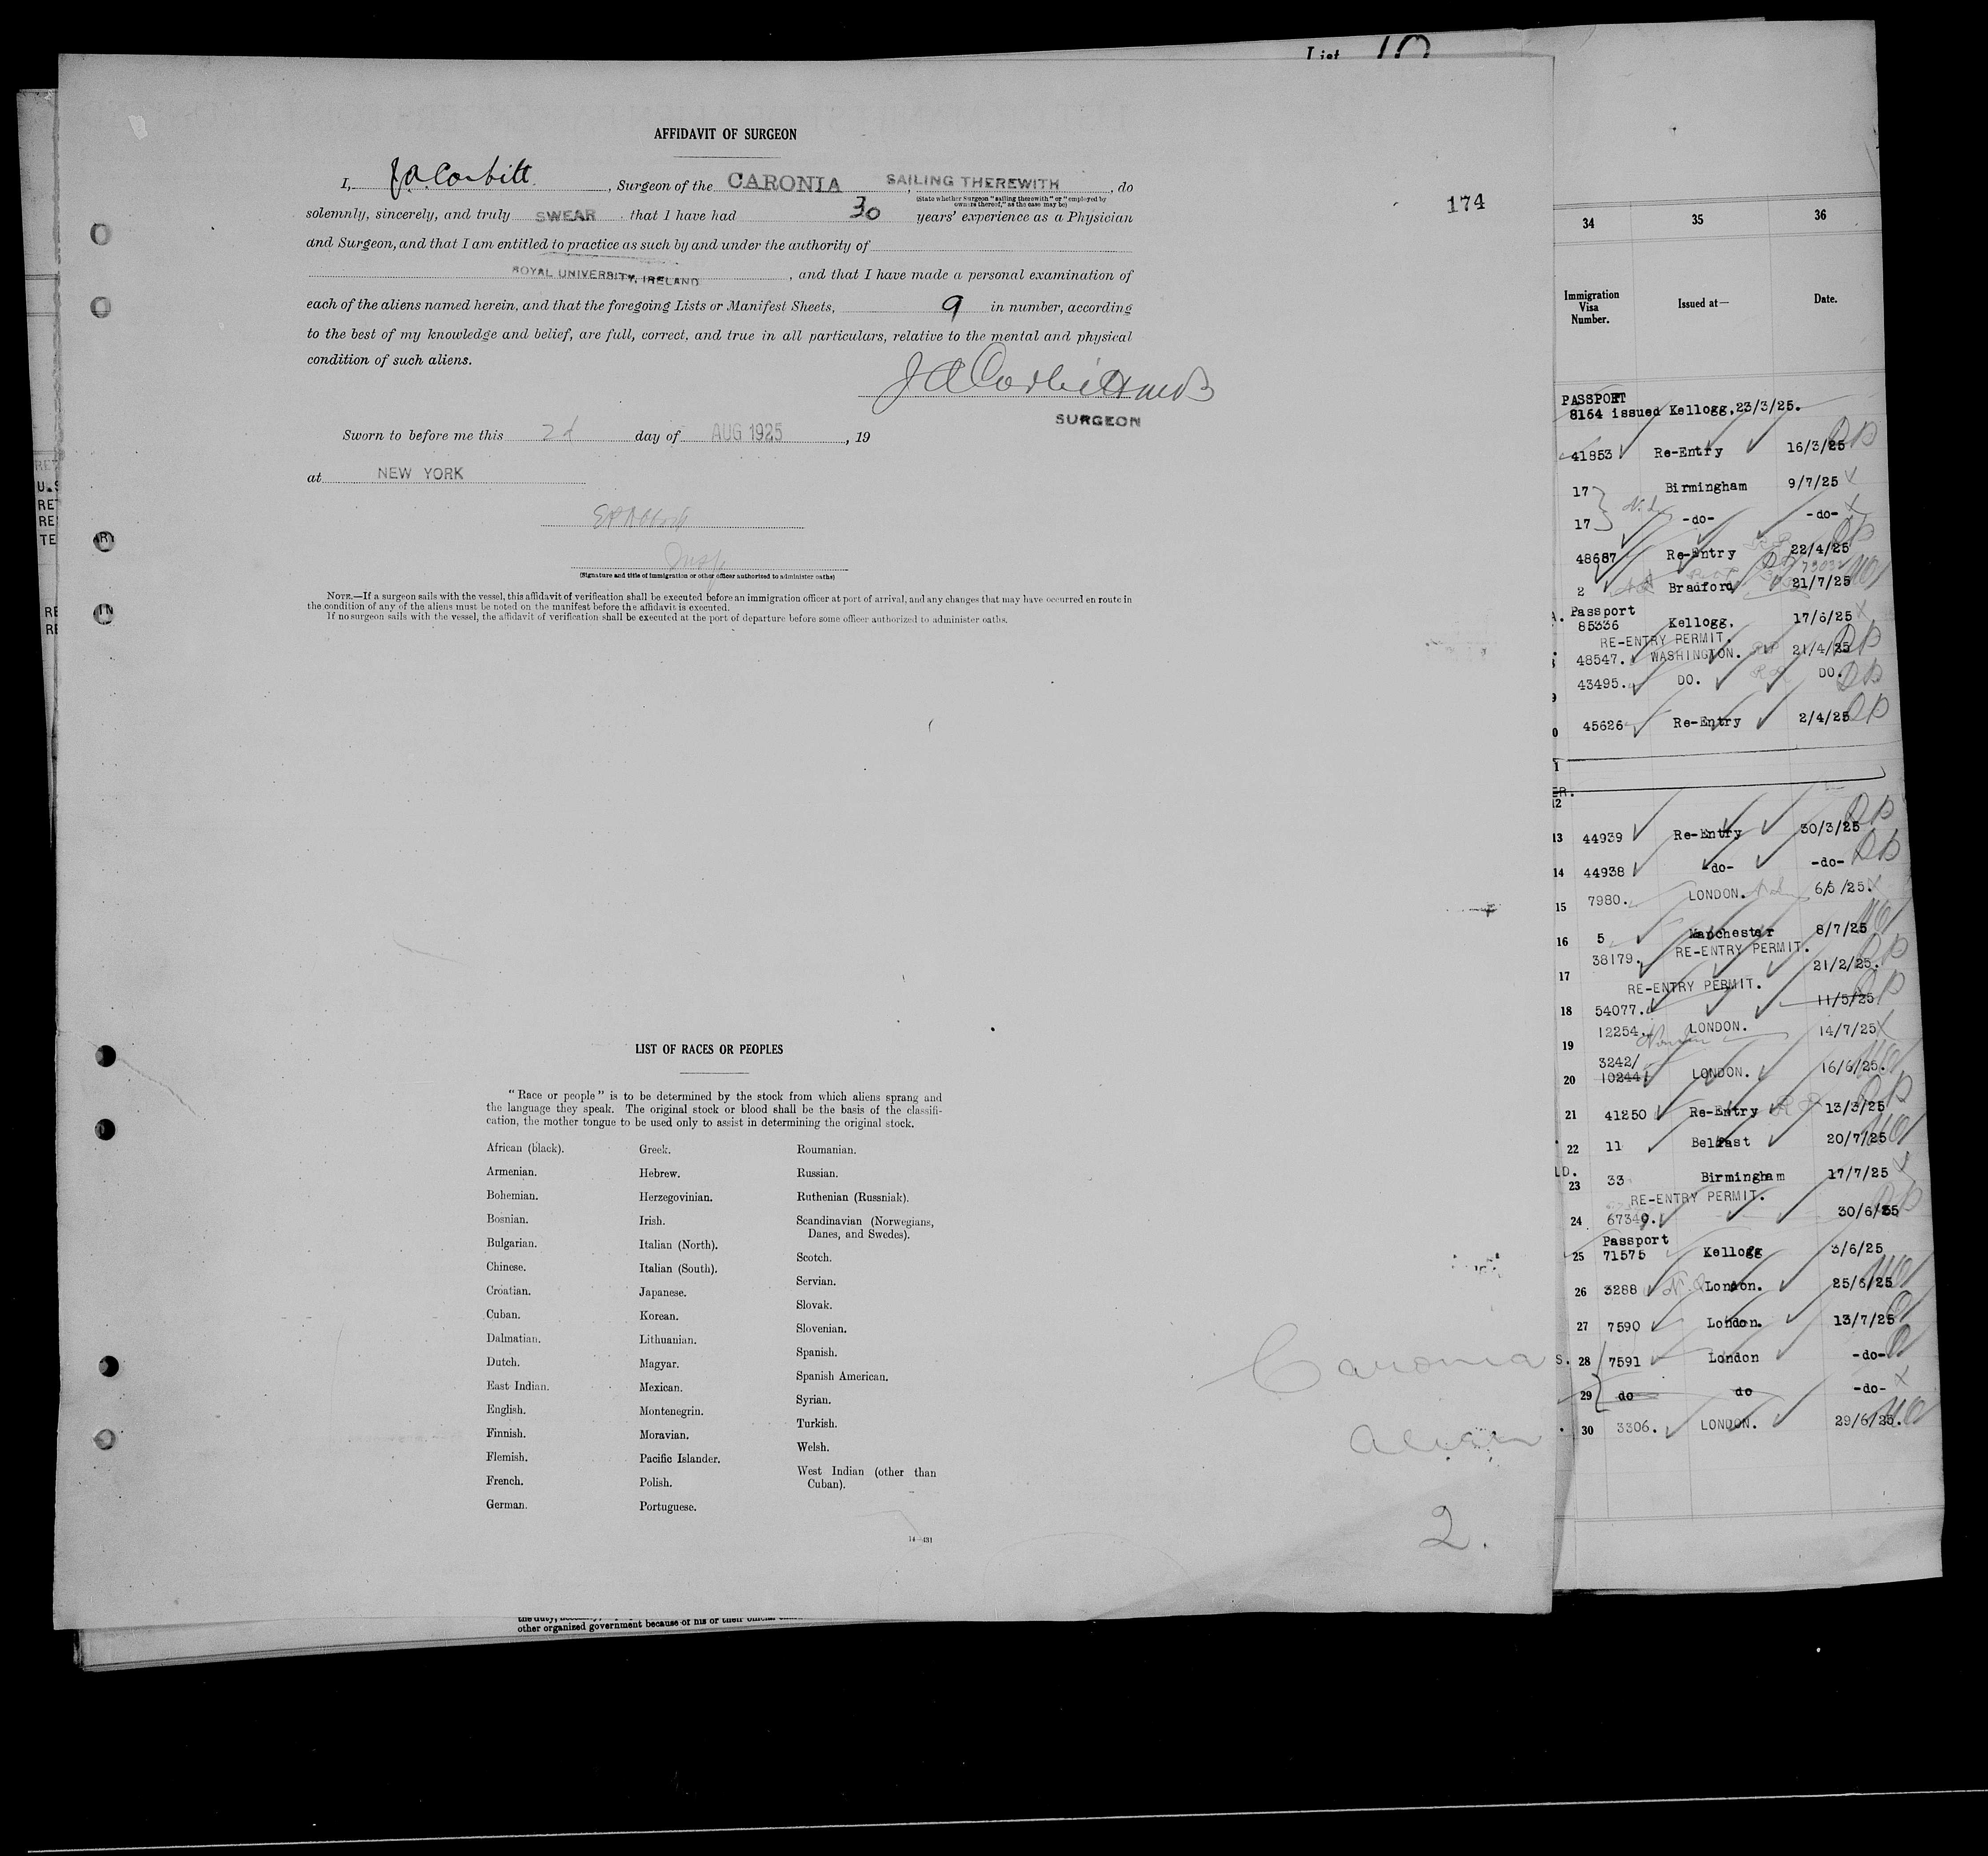 List 10
AFFIDAVIT OF SURGEON
I, J.A. Corbitt, Surgeon of the CARONIA, SAILING THEREWITH, do
(State whether Surgeon "sailing therewith" or "employed by
owners thereof," as the case may be)
solemnly, sincerely, and truly SWEAR that I have had 30 years' experience as a Physician
and Surgeon, and that I am entitled to practice as such by and under the authority of
ROYAL UNIVERSITY, IRELAND, and that I have made a personal examination of
each of the aliens named herein, and that the foregoing Lists or Manifest Sheets, 9 in number, according
to the best of my knowledge and belief, are full, correct, and true in all particulars, relative to the mental and physical
condition of such aliens.
J A Corbitt MB
SURGEON
Sworn to before me this 2d day of AUG 1925, 19
at NEW YORK
Insp
(Signature and title of immigration or other officer authorized to administer oaths)
NOTE.—If a surgeon sails with the vessel, this affidavit of verification shall be executed before an immigration officer at port of arrival, and any changes that may have occurred en route in
the condition of any of the aliens must be noted on the manifest before the affidavit is executed.
If no surgeon sails with the vessel, the affidavit of verification shall be executed at the port of departure before some officer authorized to administer oaths.
174
LIST OF RACES OR PEOPLES
"Race or people" is to be determined by the stock from which aliens sprang and
the language they speak. The original stock or blood shall be the basis of the classifi-
cation, the mother tongue to be used only to assist in determining the original stock.
African (black).
Armenian.
Bohemian.
Bosnian.
Bulgarian.
Chinese.
Croatian.
Cuban.
Dalmatian.
Dutch.
East Indian.
English.
Finnish.
Flemish.
French.
German.
Greek.
Hebrew.
Herzegovinian.
Irish.
Italian (North).
Italian (South).
Japanese.
Korean.
Lithuanian.
Magyar.
Mexican.
Montenegrin.
Moravian.
Pacific Islander.
Polish.
Portuguese.
Roumanian.
Russian.
Ruthenian (Russniak).
Scandinavian (Norwegians,
Danes, and Swedes).
Scotch.
Servian.
Slovak.
Slovenian.
Spanish.
Spanish American.
Syrian.
Turkish.
Welsh.
West Indian (other than
Cuban).
14—431
Caronia
Alien
2.
other organized government because of his or their official
34 35 36
Immigration
Visa
Number.
Issued at—
Date.
PASSPORT
8164 issued Kellogg, 23/3/25.
41853 Re-Entry 16/3/25
17 Birmingham 9/7/25
17 -do- -do-
48687 Re-Entry 22/4/25
2 Bradford 21/7/25
Passport
85336 Kellogg. 17/6/25
RE-ENTRY PERMIT.
48547. WASHINGTON. 21/4/25
43495. DO. DO.
45626 Re-Entry 2/4/25
12
13 44939 Re-Entry 30/3/25
14 44938 -do- -do-
15 7980. LONDON. 6/5/25.
16 5 Manchester 8/7/25
38179. RE-ENTRY PERMIT.
17 21/2/25.
RE-ENTRY PERMIT.
18 54077. 11/5/25
19 12254. LONDON. 14/7/25
3242/
20 10244 LONDON. 16/6/25.
21 41250 Re-Entry 13/3/25
22 11 Belfast 20/7/25
LD.
23 33 Birmingham 17/7/25
RE-ENTRY PERMIT.
24 67349. 30/6/25
Passport
25 71575 Kellogg 3/6/25
26 3288 London. 25/6/25
27 7590 London. 13/7/25
S. 28 7591 London -do-
29 do do -do-
30 3306. LONDON. 29/6/25.